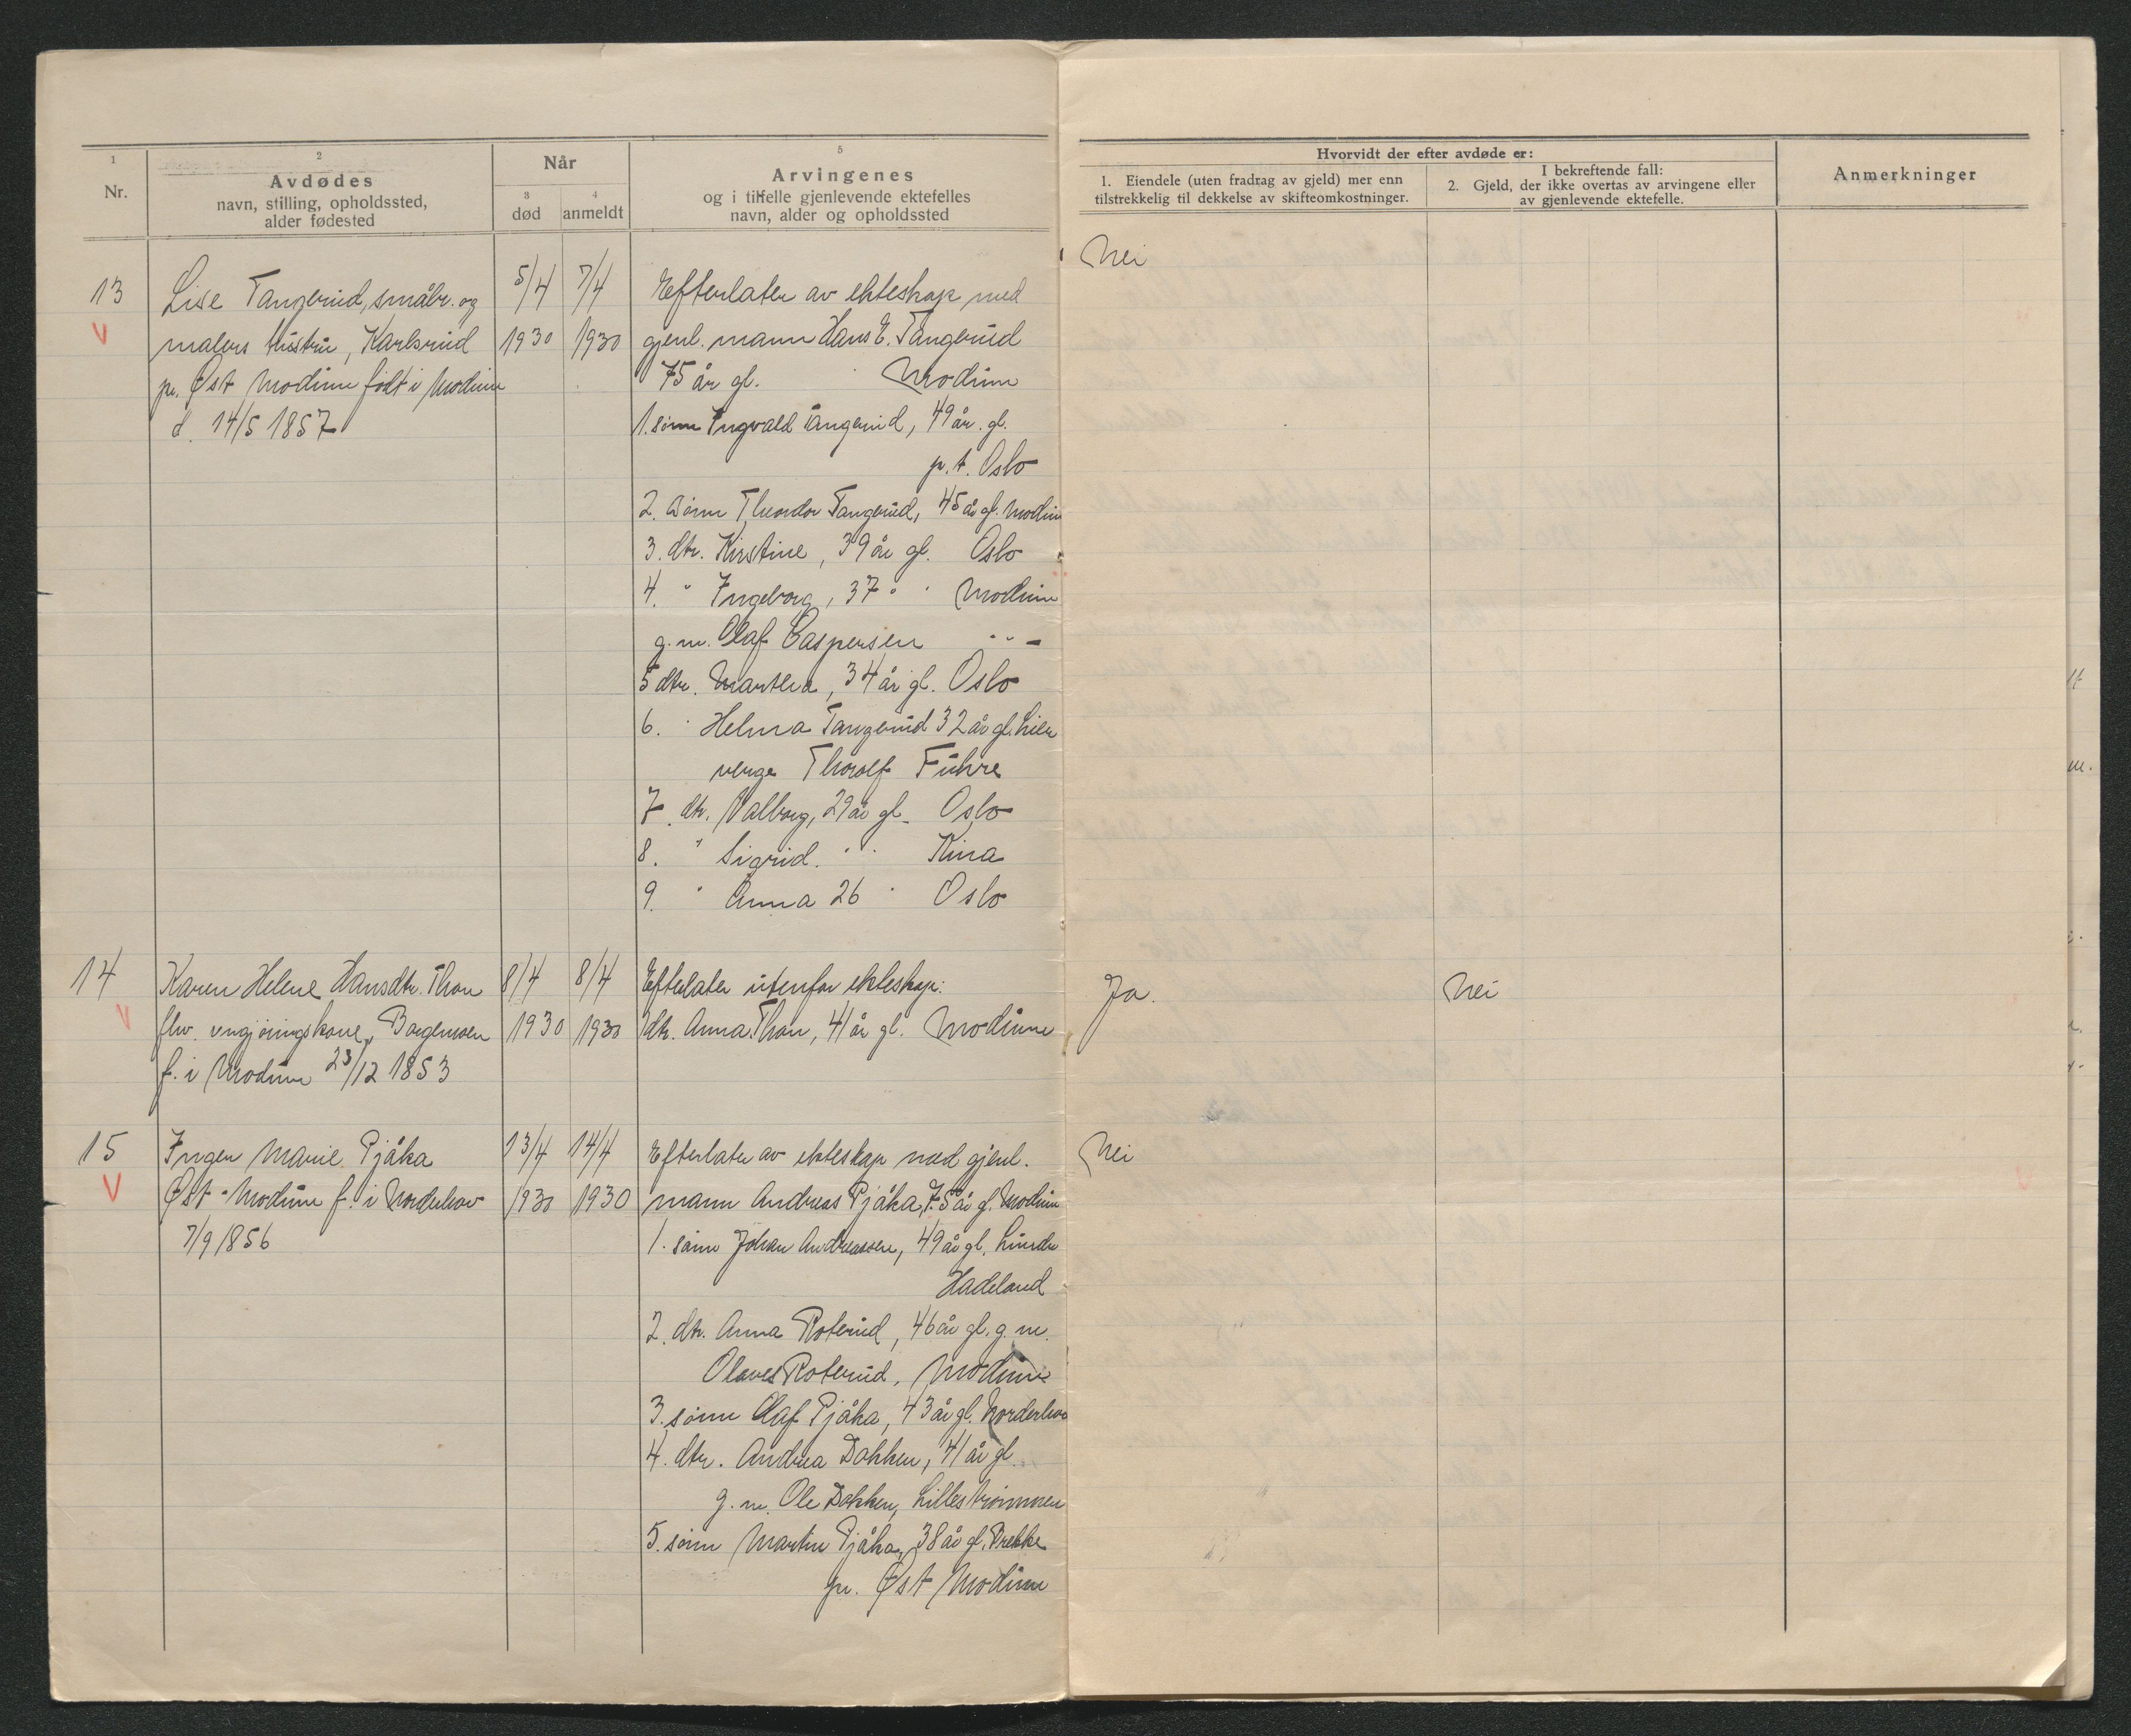 1
Nr.
2
Avdødes
navn, stilling, opholdssted,
alder fødested
Når
3
død
4
anmeldt
5
Arvingenes
og i tilfelle gjenlevende ektefelles
navn, alder og opholdssted
Hvorvidt der efter avdøde er:
1. Eiendele (uten fradrag av gjeld) mer enn
tilstrekkelig til dekkelse av skifteomkostninger.
I bekreftende fall:
2. Gjeld, der ikke overtas av arvingene eller
av gjenlevende ektefelle.
Anmerkninger
13
V
Lise Tangerud, småbr. og
malers hustru, Karlsrud
pr. Øst Modum født i Modum
d. 14/5 1857
5/4
1930
7/4
1930
Efterlater av ekteskap med
gjenl. mann Hans E. Tangerud
75 år gl. Modum
1. sønn Ingvald Tangerud, 49 år. gl.
p.t. Oslo
2. sønn Theodor Tangerud, 45 år gl. Modum
3. dtr. Kirstine, 39 år gl. Oslo
4. " Ingeborg, 37 " " Modum
g.m. Olaf Caspersen " " -
5 dtr. Martha, 34 år gl. Oslo
6. " Helma Tangerud 32 år gl. Lier
verge Thorolf Fuhre
7. dtr. Valborg, 29 år gl. Oslo
8. " Sigrid. " " Kina
9. " Anna 26 " Oslo
Nei
14
V
Karen Helene Hansdtr. Thon
fhv. rengjøringskone, Borgemoen
f. i Modum 23/12 1853
8/4
1930
8/4
1930
Efterlater utenfor ekteskap:
1 dtr. Anna Thon, 41 år gl. Modum
Ja.
Nei
15
V
Inger Marie Pjåka
Øst-Modum f. i Norderhov
7/9 1856
13/4
1930
14/4
1930
Efterlater av ekteskap med gjenl.
mann Andreas Pjåka, 75 år gl. Modum
1. sønn Johan Andreassen, 49 år gl. Lunder
Hadeland
2. dtr. Anna Roterud, 46 år gl. g.m.
Olaves Roterud, Modum
3. sønn Olaf Pjåka, 43 år gl. Norderhov
4. dtr. Andrea Dokken, 41 år gl.
g.m. Ole Dokken, Lillestrømmen
5. sønn Martin Pjåka, 38 år gl.
pr. Øst Modum
Nei